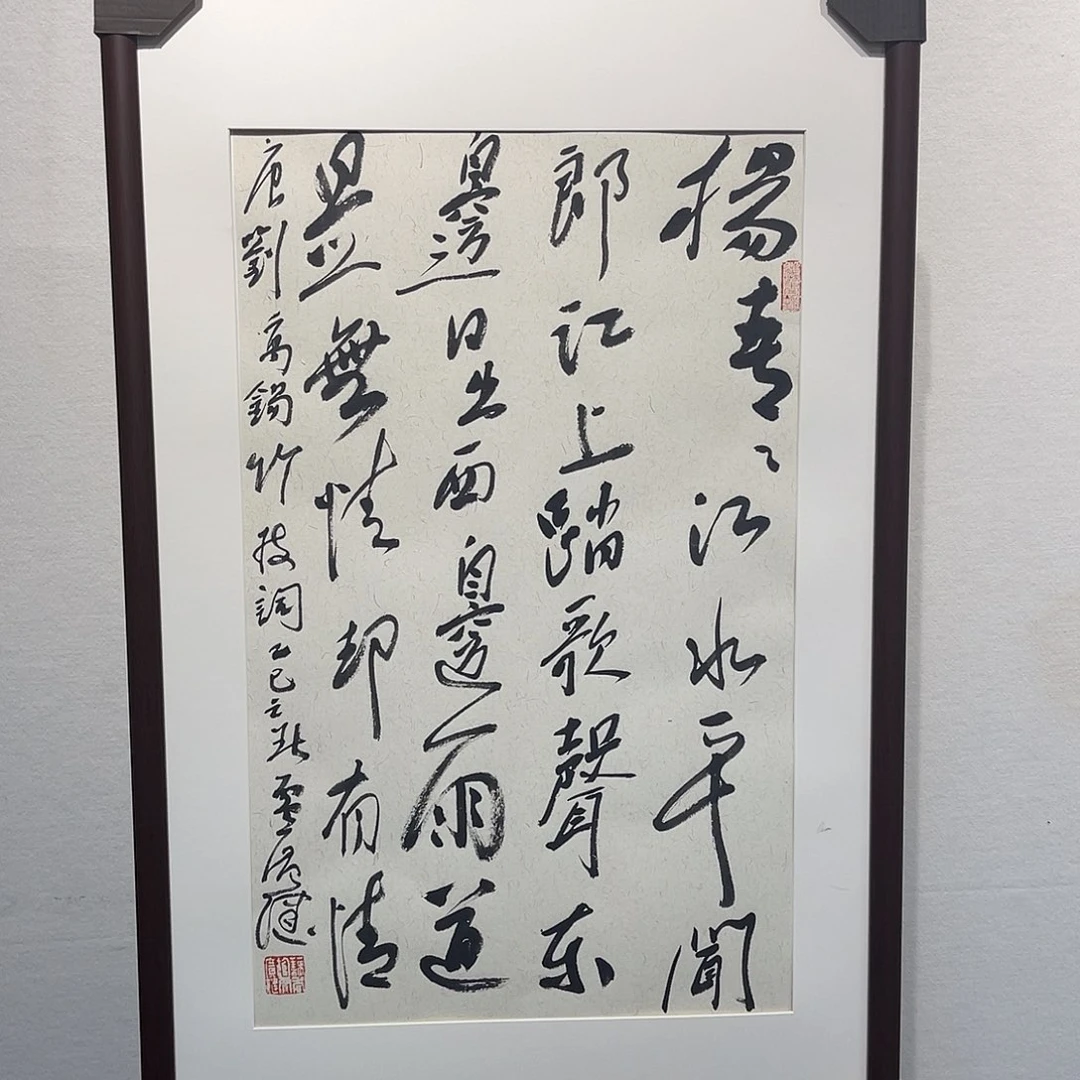 楊青〻江水平聞
郎江上踏歌聲东
邊日出西邊雨道
是無情却有情
唐劉禹錫竹枝詞乙巳之秋